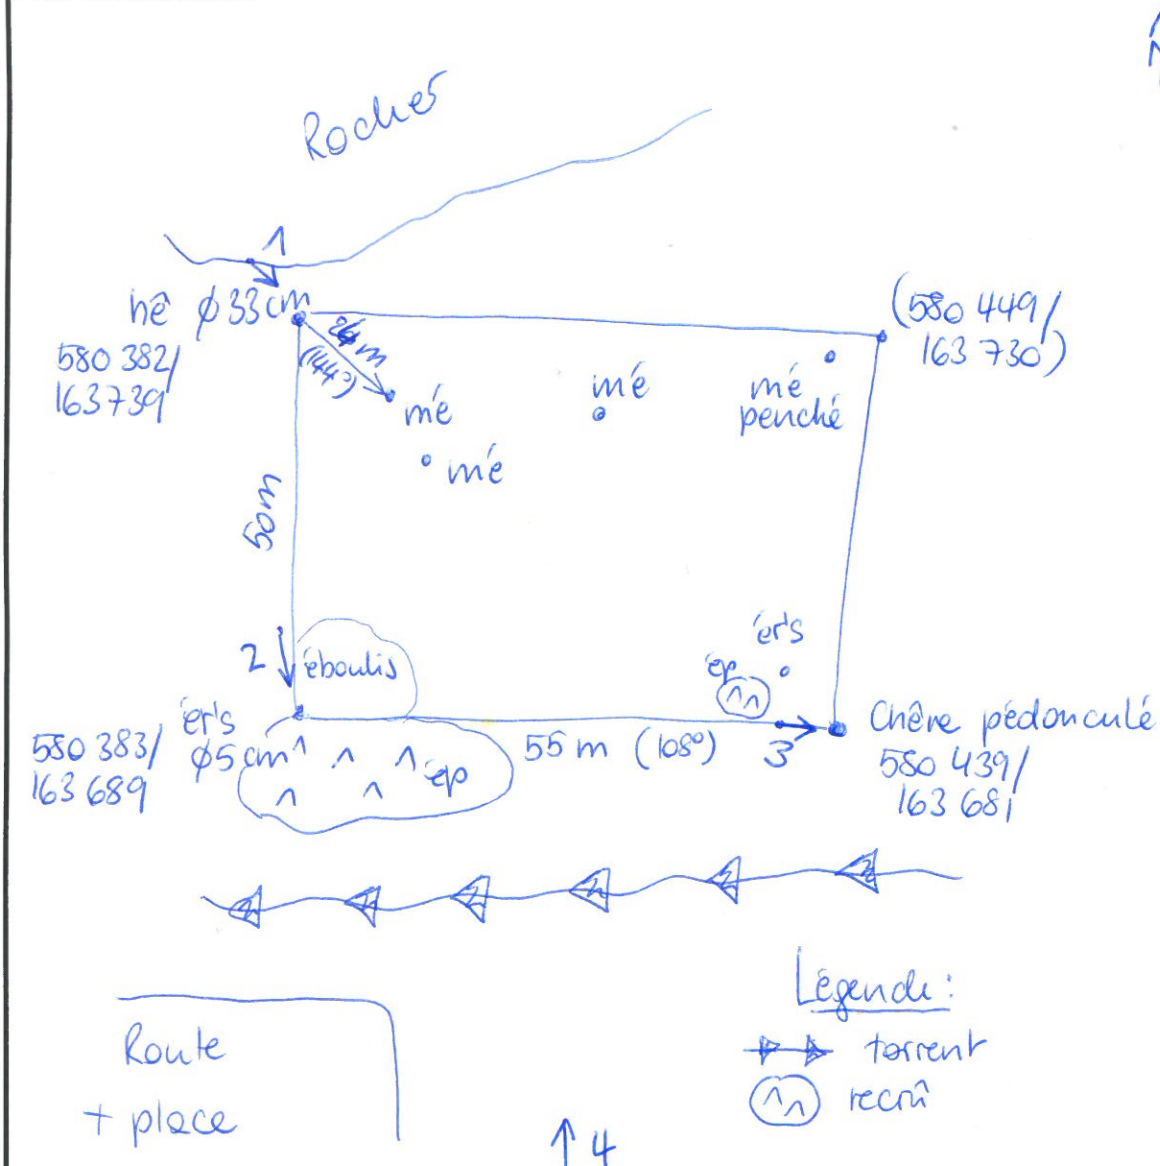 Rocher
1
hê ∅33cm
580 382/
163 739
(144°)
(580 449/
163 730)
mé
mé
mé
mé
penché
50m
2
éboulis
ér's
∅5cm
580 383/
163 689
ép
55 m (108°)
3
ér's
ép
Chêne pédonculé
580 439/
163 681
Légende:
torrent
recrû
Route
+ place
4